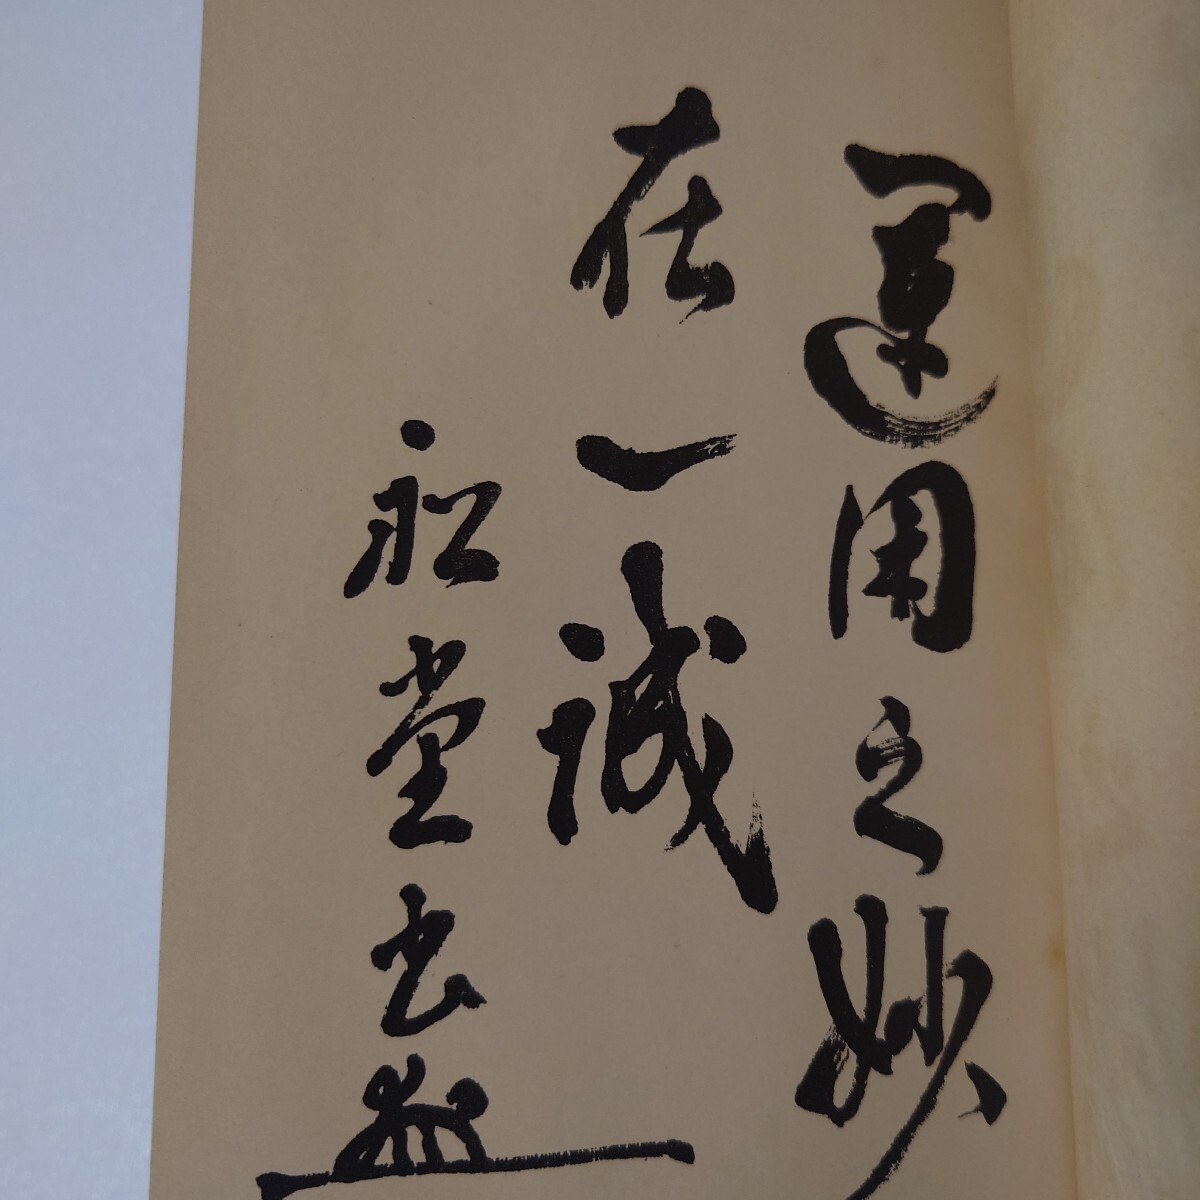 運用之妙
在一誠
堂書